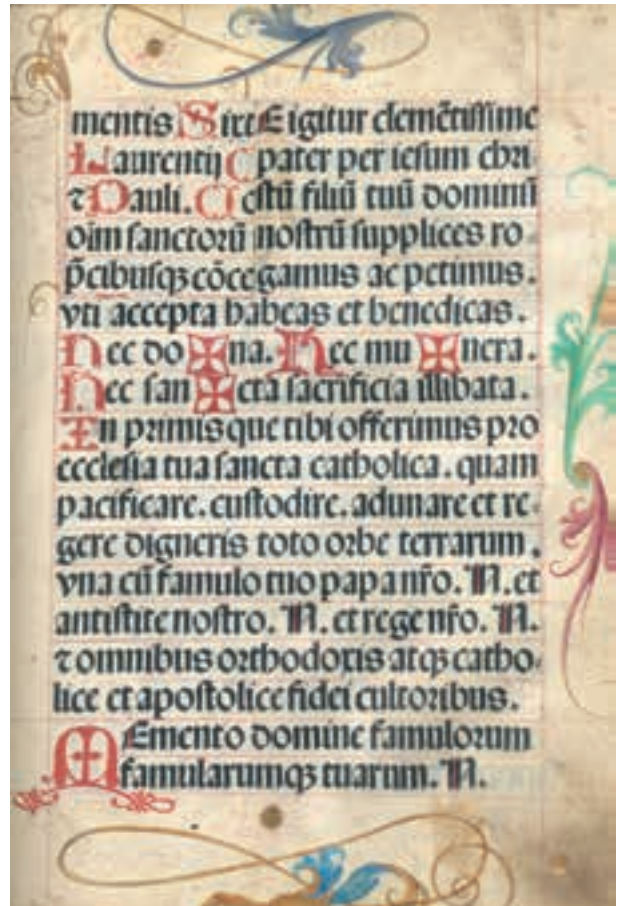 mentis Sixt E igitur clemētissime
Laurentij C pater per iesum chri
⁊ Pauli. C stū filiū tuū dominū
oim sanctorū nostrū supplices ro
p̄cibusqꝫ cōce gamus ac petimus.
vti accepta habeas et benedicas.
Nec do ✠ na. Nec mu ✠ nera.
Nec san ✠ cta sacrificia illibata.
In primis que tibi offerimus pro
ecclesia tua sancta catholica. quam
pacificare. custodire. adunare et re
gere digneris toto orbe terrarum.
vna cū famulo tuo papa nr̄o. N. et
antistite nostro. N. et rege nr̄o. N.
⁊ omnibus orthodoxis atqꝫ catho
lice et apostolice fidei cultoribus.
MEmento domine famulorum
famularumqꝫ tuarum. N.